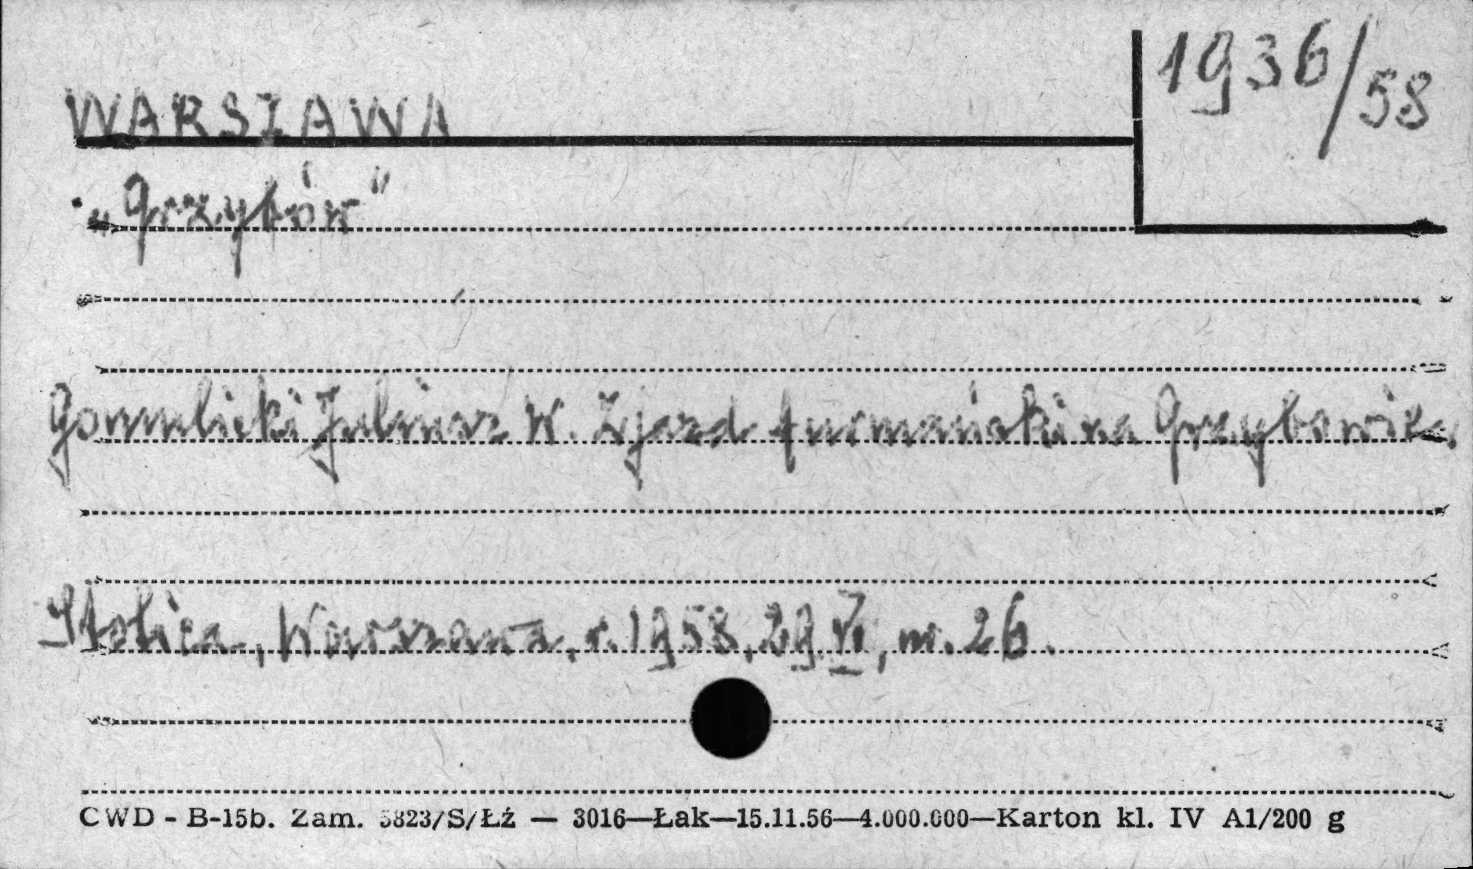 1936/58
WARSZAWA
„Grzybów"
Gomulicki Juliusz W. Zjazd furmański na Grzybowie.
Stolica, Warszawa, r. 1958, 29.VI, nr. 26.
CWD - B-15b. Zam. 5823/S/Łź — 3016—Łak—15.11.56—4.000.000—Karton kl. IV A1/200 g